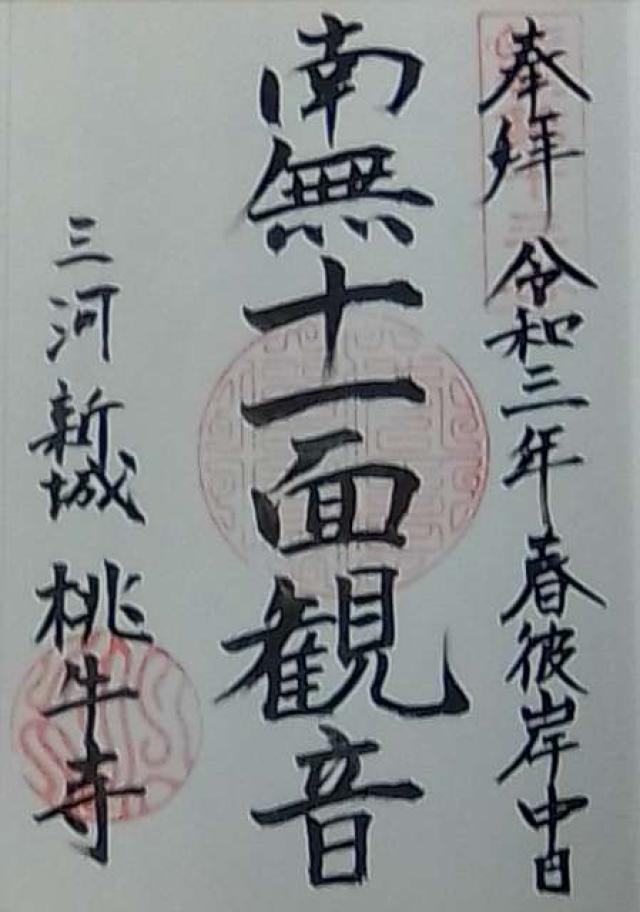 奉拝 令和三年春彼岸中日
南無十一面観音
三河新城 桃牛寺